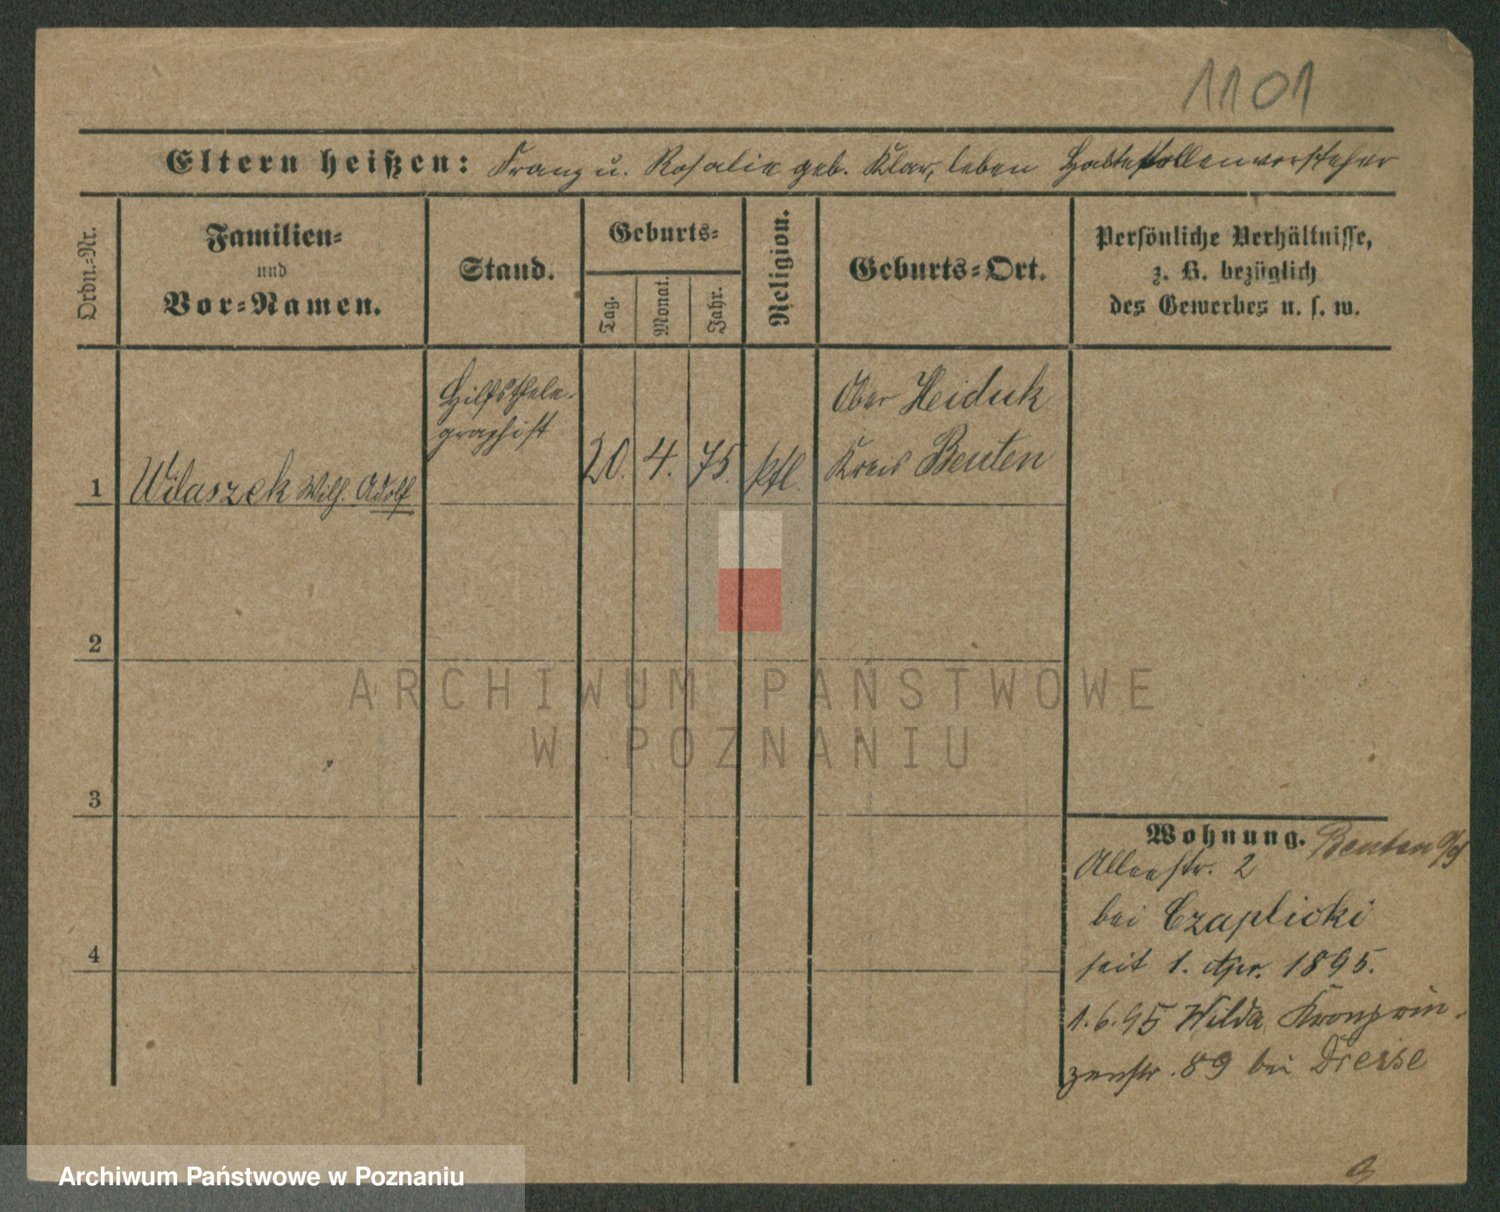 1101
Eltern heißen: Franz u. Rosalie geb. Klar, leben Haltestellenvorsteher
Ordn.-Nr.
Familien-
und
Vor-Namen.
Stand.
Geburts-
Tag.
Monat.
Jahr.
Religion.
Geburts-Ort.
Persönliche Verhältnisse,
z. B. bezüglich
des Gewerbes u. s. w.
1
Wilaszek Wilh. Adolf
Hilfstele-
graphist
20. 4. 75. ktl.
Ober Heiduk
Kreis Beuten
2
3
4
Wohnung. Beuten O/S
Alleestr. 2
bei Czaplicki
seit 1. Apr. 1895.
1.6.95 Wilda Kronprin-
zenstr. 89 bei Dreise
ARCHIWUM PAŃSTWOWE
W POZNANIU
Archiwum Państwowe w Poznaniu